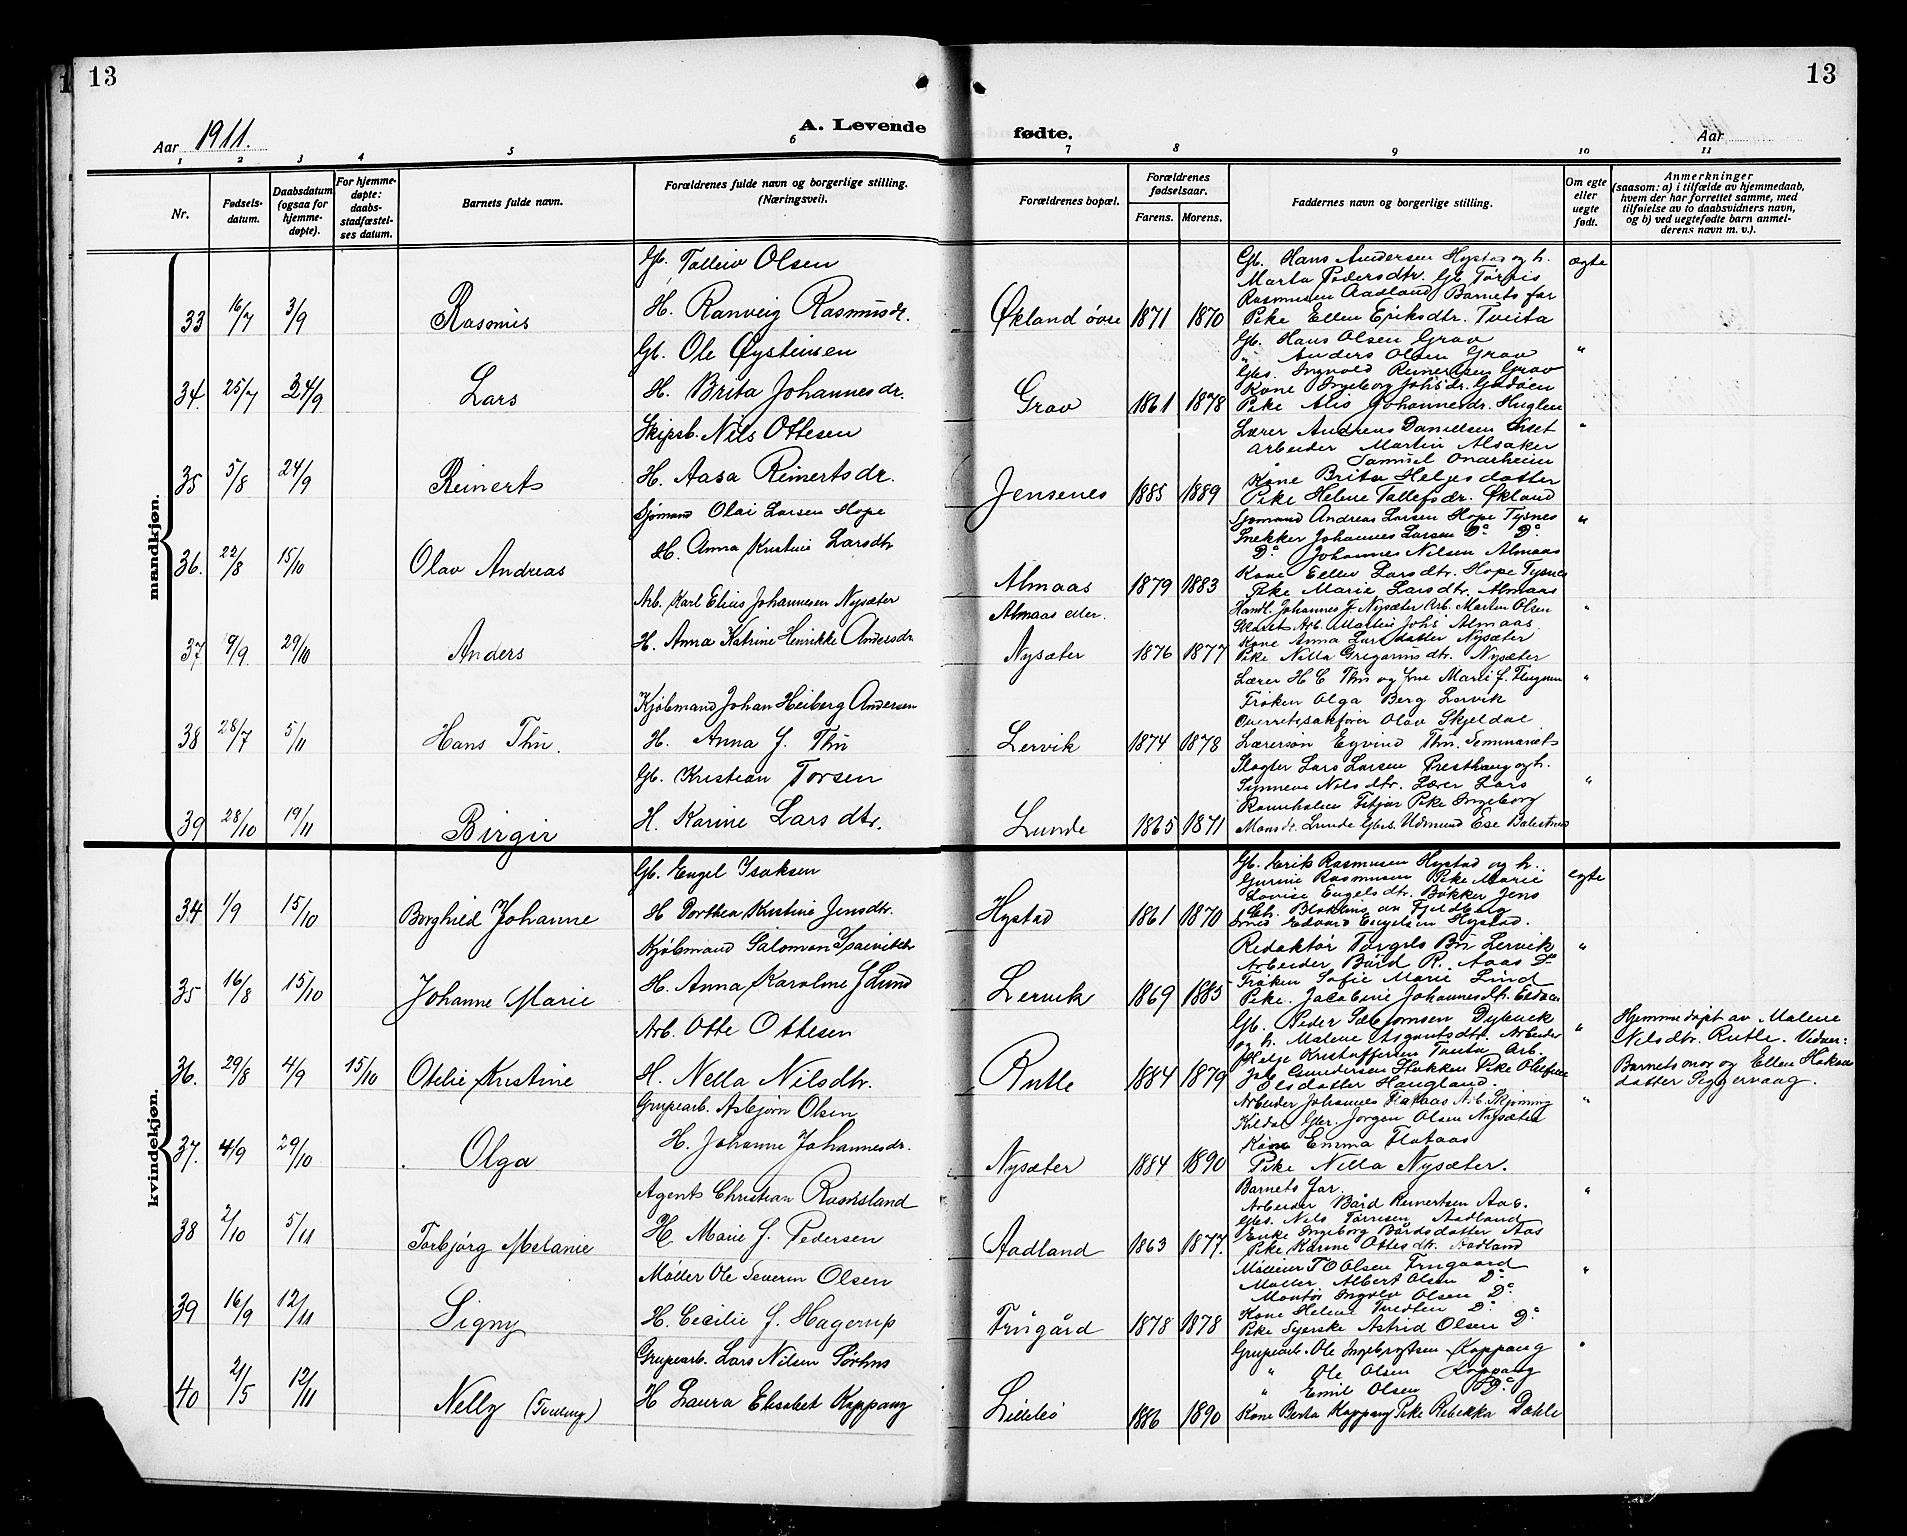 13
13
Aar 1911.
A. Levende
fødte.
Aar
1 2 3 4 5 6 7 8 9 10 11
Nr.
Fødsels-
datum.
Daabsdatum
(ogsaa for
hjemme-
døpte).
For hjemme-
døpte:
daabs-
stadfæstel-
ses datum.
Barnets fulde navn.
Forældrenes fulde navn og borgerlige stilling.
(Næringsvei).
Forældrenes bopæl.
Forældrenes
fødselsaar.
Farens. Morens.
Faddernes navn og borgerlige stilling.
Om egte
eller
uegte
født.
Anmerkninger
(saasom: a) i tilfælde av hjemmedaab,
hvem der har forrettet samme, med
tilføielse av to daabsvidners navn,
og b) ved uegtefødte barn anmel-
derens navn m. v.).
mandkjøn.
Gb. Tolleiv Olsen
33 16/7 3/9 Rasmus H. Ranveig Rasmusdr. Økland övre 1871 1870
Gb. Hans Andersen Hystad og h. ægte
Marta Pedersdtr. Gb. Tørris
Rasmusen Aadland Barnets far
Pike Ellen Eriksdtr. Tveita
Gb. Ole Øystensen
34. 25/7 24/9 Lars H. Brita Johannesdr. Grov 1861 1878
Gb. Hans Olsen Grov "
" Anders Olsen Grov
Gbs. Ingvold Reinertsen Grov
Kone Ingeborg Johsdr. Godøen
Pike Alis Johannesdr. Huglen
Skipsb. Nils Ottesen
35 5/8 24/9 Reinerts H. Aasa Reinertsdr. Jensenes 1885 1889
Lærer Andreas Danielsen Liset "
Arbeider Martin Alsaker
" Samuel Onarheim
Kone Brita Helgesdatter
Pike Helene Tollefsdr. Økland
Sjømand Olai Larsen Hope
36. 22/8 15/10 Olav Andreas H. Anna Kristine Larsdtr Almaas 1879 1883
Sjømand Andreas Larsen Hope Tysnes "
Snekker Johannes Larsen Do Do
Do Johannes Nilsen Almaas
Kone Ellen Larsdtr. Hope Tysnes
Pike Marie Larsdtr. Almaas
Arb. Karl Elius Johannesen Nysæter
Almaas eller
37 9/9 29/10 Anders H. Anna Katrine Henrikke Andersdr Nysæter 1876 1877
Handl. Johannes J. Nysæter Arb. Martin Olsen "
Arb. Martin Johs Almaas
Kone Anna Larsdatter Nysæter
Pike Nilla Gregoriusdtr. Nysæter
Kjøbmand Johan Heiberg Andersen
38 28/7 5/11 Hans Thu. H. Anna J. Thu Lervik 1874 1878
Lærer H C Thu og Frue Marie f. "
Frøken Olga Berg Lervik
Overretssakfører Olav Skjeldal
Lærersøn Eyvind Thu. Seminariets
Gb. Kristian Torsen
39 28/10 19/11 Birgir H. Karine Larsdtr. Lunde 1865 1871
Slagter Lars Larsen Presthaug og h.
Synneva Nilsdtr. Lærer Lars "
Fitjar Pike Ingeborg
Monsdr. Lunde Gbs. Udmund Ese Balestrand
kvindekjøn.
Gb. Engel Isaksen
34 1/9 15/10 Borghild Johanne H Dorthea Kristine Jensdtr. Hystad 1861 1870
Gb. Erik Rasmusen Hystad og h. egte
Gurine Rasmusen Pike Marie
Lovise Engelsdtr. Bøkker Jens
Edvard Engelsen Hystad.
Kjøbmand Salomon
35 16/8 15/10 Johanne Marie H. Anna Karoline J Lund Lervik 1869 1885
Redaktør Torgils Bö Lervik "
Arbeider Bård R. Aaas Do
Frøken Sofie Marie Lund
Pike. Jacobine Johannesdtr.
Arb. Otte Ottesen
36. 29/8 4/9 15/10 Otelie Kristine H. Nella Nilsdtr. Rutle 1884 1879
Gb. Peder Dybuck "
og h. Malene Arbeider
Helje Kristoffersen Tveita Arb.
Gundersen Stokken Pike
Olsdatter Haugland.
Hjemmedøpt av Malene
Nilsdtr. Rutle. Vidner:
Barnets mor og Ellen Hakon
datter Siggervaag.
Grupearb. Asbjørn Olsen
37. 4/9 29/10 Olga H. Johanne Johannesdr. Nysæter 1884 1890
Arbeider Johannes Flataas Arb. "
Kildal Jørgen Olsen Nysæter
Kone Emma Flataas
Pike Nilla Nysæter.
Agents Christian
38 2/10 5/11 Torbjørg Melanie H. Marie J. Pedersen Aadland 1863 1877.
Barnets far. "
Arbeider Bård Reinertsen Aas.
Gbs. Nils Tørresen Aadland
Enke Ingeborg Bårdsdatter Aas
Pike Karine Ottesdtr. Aadland
Møller Ole Severin Olsen
39 16/9 12/11 Signy H. Cecilie J. Hagerup Frugård 1878 1878
Møller T O Olsen Frugaard "
Møller Albert Olsen Do
Montør Ingvald Olsen Do
Kone Helene Tvedten Do
Pike Syerske Astrid Olsen Do
Grupearb. Lars Nilsen Sørhus
40 21/5 12/11 Nelly (Tvilling) H Laura Elisabet Koppang Lillebö 1886 1890
Grupearb. Ole Ingebrigtsen Koppang "
" Ole Olsen Koppang
" Emil Olsen Do
Kone Berta Koppang Pike Rebekka Dahle